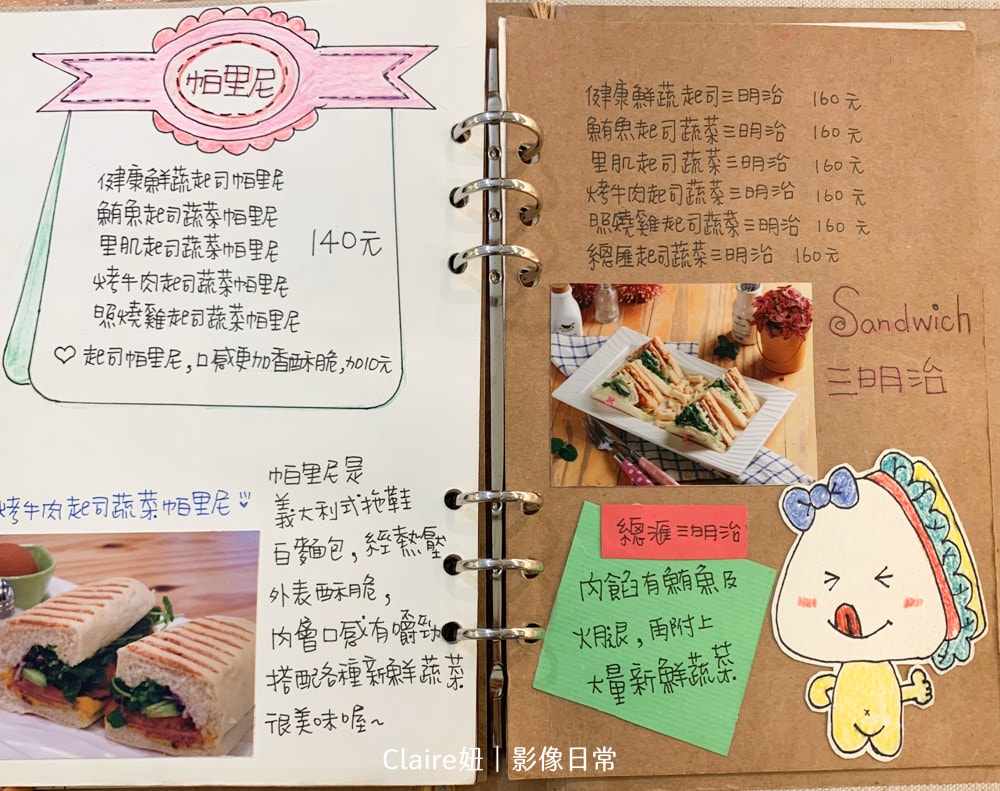 帕里尼
健康鮮蔬起司帕里尼
鮪魚起司蔬菜帕里尼
里肌起司蔬菜帕里尼
烤牛肉起司蔬菜帕里尼
照燒雞起司蔬菜帕里尼
140元
♡ 起司帕里尼,口感更加香酥脆,加10元
烤牛肉起司蔬菜帕里尼
帕里尼是
義大利式拖鞋
白麵包,經熱壓
外表酥脆,
內層口感有嚼勁
搭配各種新鮮蔬菜
很美味喔~
健康鮮蔬起司三明治 160元
鮪魚起司蔬菜三明治 160元
里肌起司蔬菜三明治 160元
烤牛肉起司蔬菜三明治 160元
照燒雞起司蔬菜三明治 160元
總匯起司蔬菜三明治 160元
Sandwich
三明治
總滙三明治
內餡有鮪魚及
火腿,再附上
大量新鮮蔬菜
Claire妞|影像日常